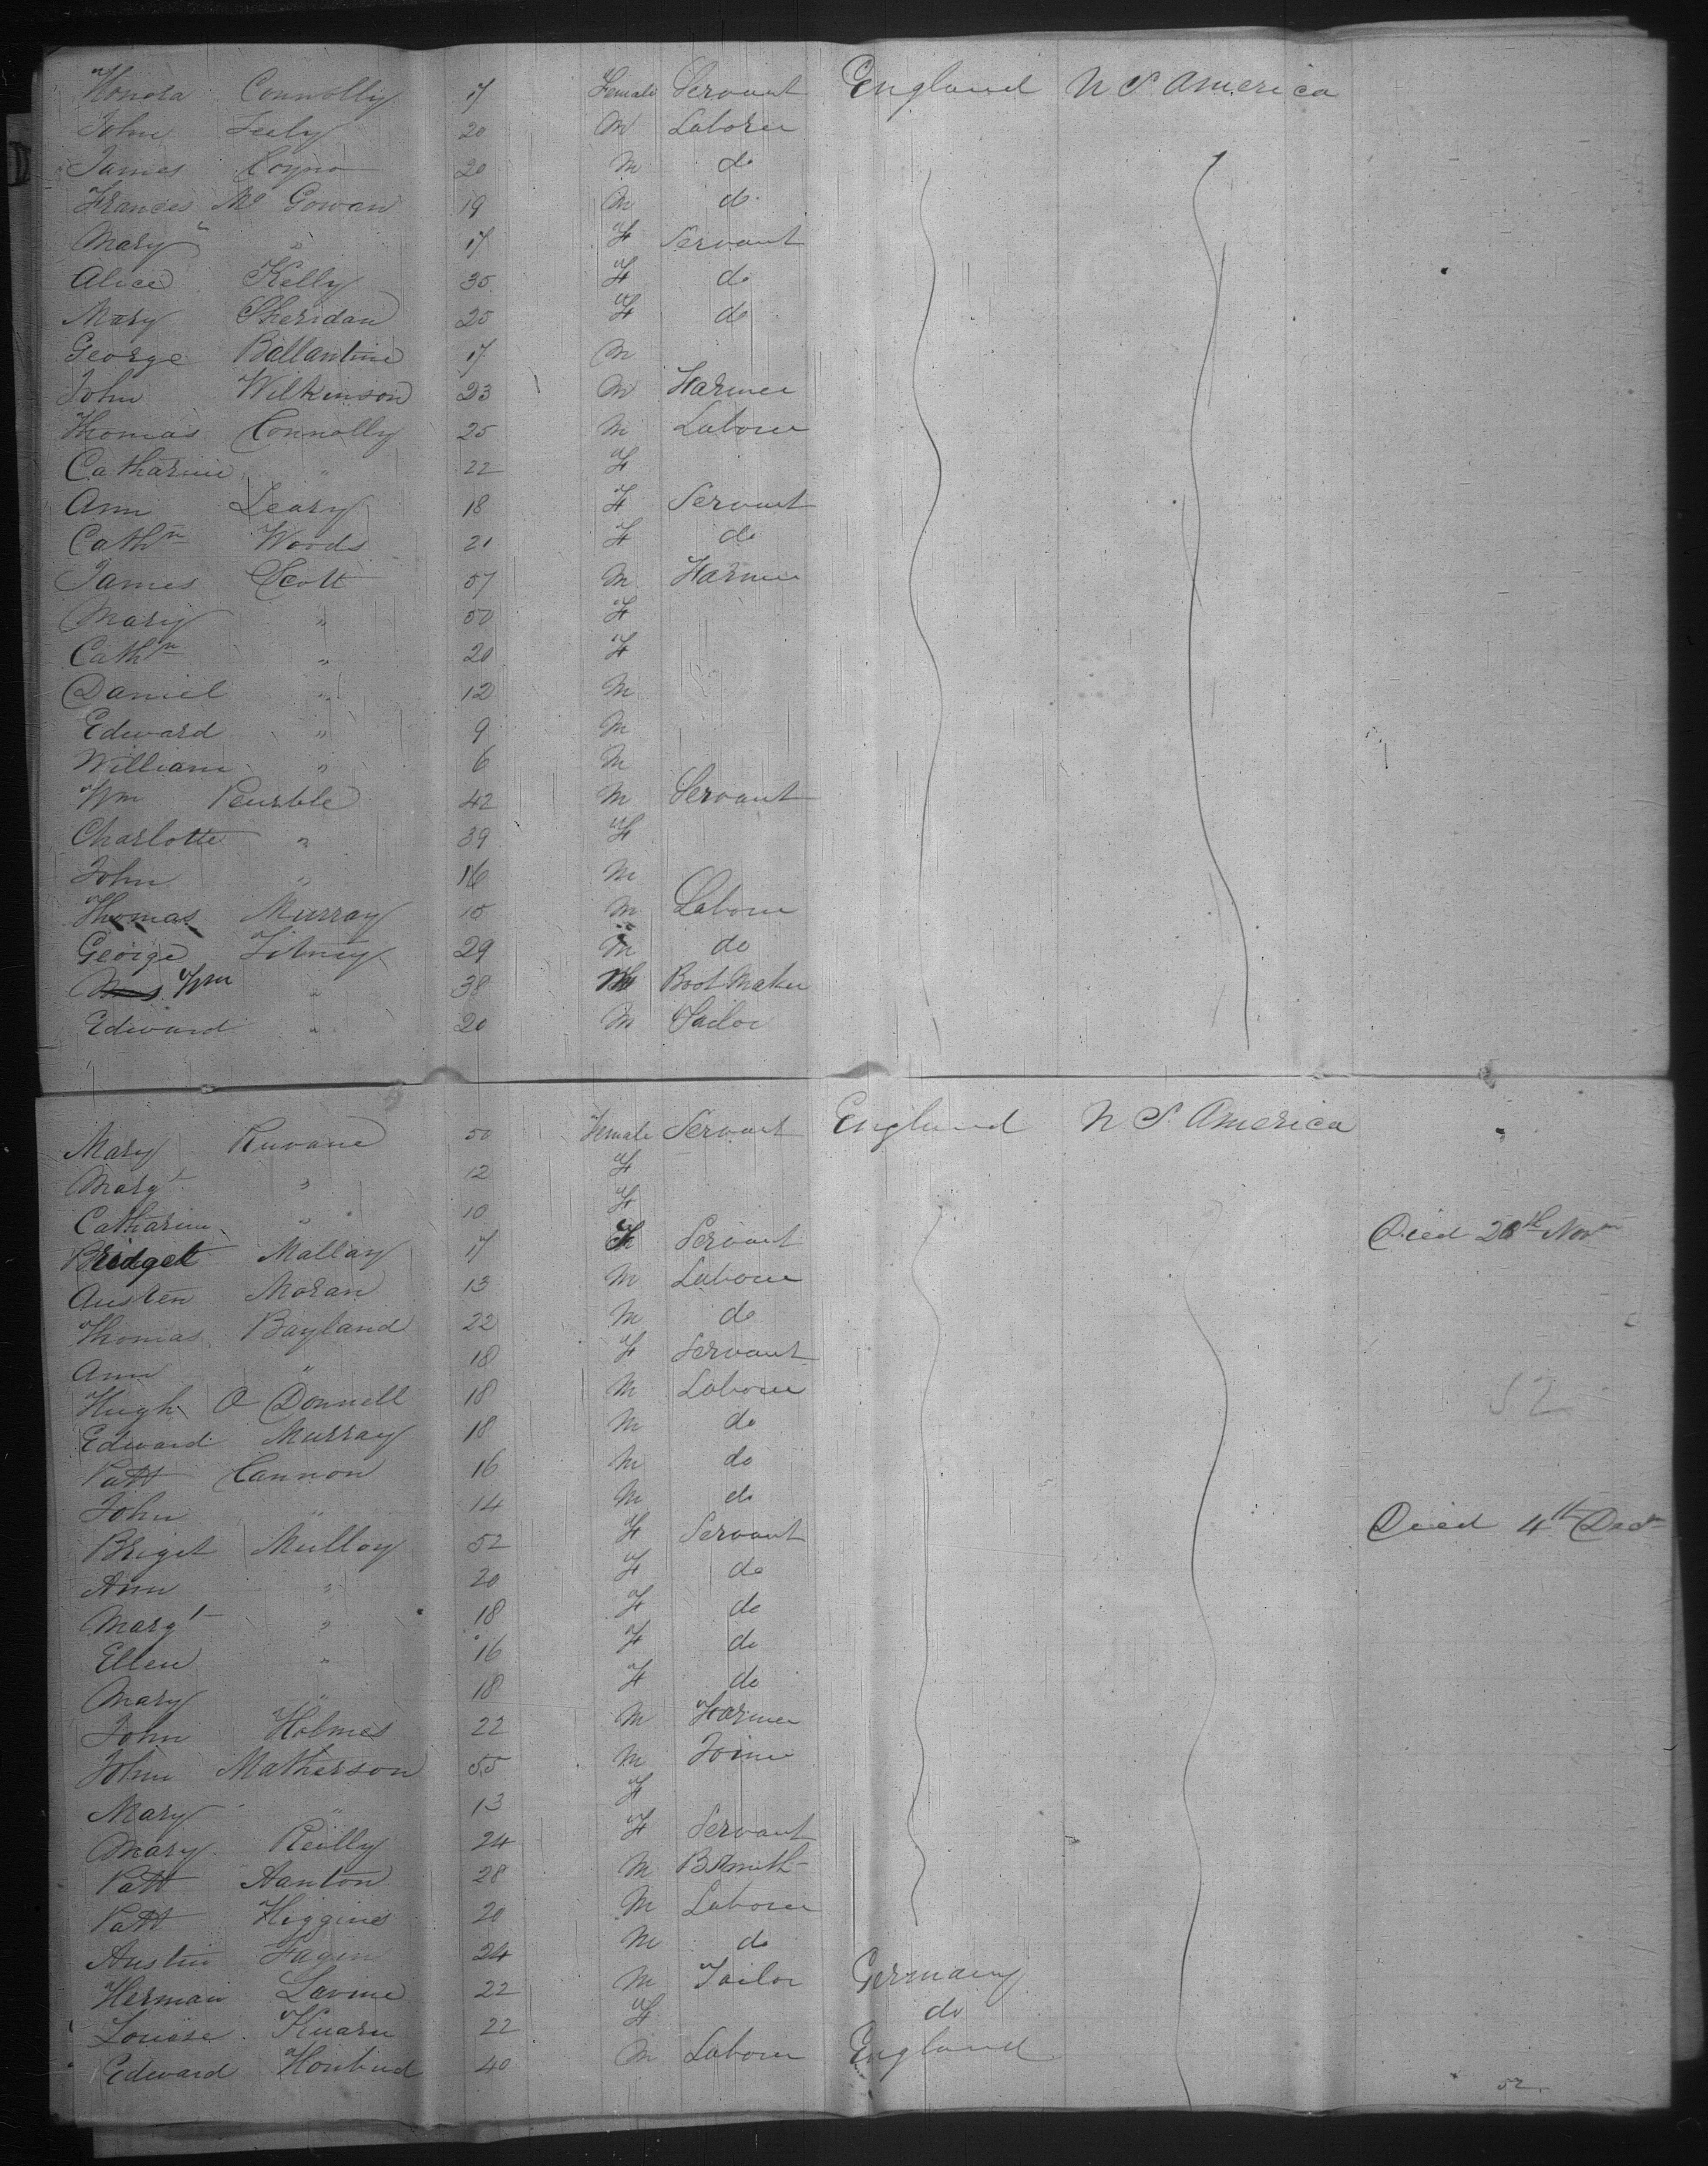 Honora Connolly 17 Female Servant England N S America
John Feely 20 M Laborer
James Coyne 20 M do
Frances Mc Gowan 19 M do
Mary " 17 F Servant
Alice Kelly 35 F do
Mary Sheridan 25 F do
George Ballantine 17 M
John Wilkinson 23 M Farmer
Thomas Connolly 25 M Laborer
Catharine " 22 F
Ann Leary 18 F Servant
Cathn Woods 21 F do
James Scott 57 M Farmer
Mary " 50 F
Cathn " 20 F
Daniel " 12 M
Edward " 9 M
William " 6 M
Wm 42 M Servant
Charlotte " 39 F
John " 16 M
Thomas Murray 15 M Laborer
George 29 M do
Wm " 38 M Boot Maker
Edward " 20 M Tailor
Mary Ruvane 50 Female Servant England N S America
Margt " 12 F
Catharine " 10 F
Bridget Mallay 17 F Servant Died 28th Novr
Austen Moran 13 M Laborer
Thomas Bayland 22 M do
Ann " 18 F Servant
Hugh O Donnell 18 M Laborer 52
Edward Murray 18 M do
Patt Cannon 16 M do
John " 14 M do
Briget Mulloy 52 F Servant Died 4th Decr
Ann " 20 F do
Margt " 18 F do
Ellen " 16 F do
Mary " 18 F do
John Holmes 22 M Farmer
John Matherson 55 M Joiner
Mary " 13 F
Mary Reilly 24 F Servant
Patt Hanton 28 M B Smith
Patt Higgins 20 M Laborer
Austin Fagin 24 M do
Herman Lavine 22 M Tailor Germany
Louise 22 F do
Edward 40 M Laborer England
52